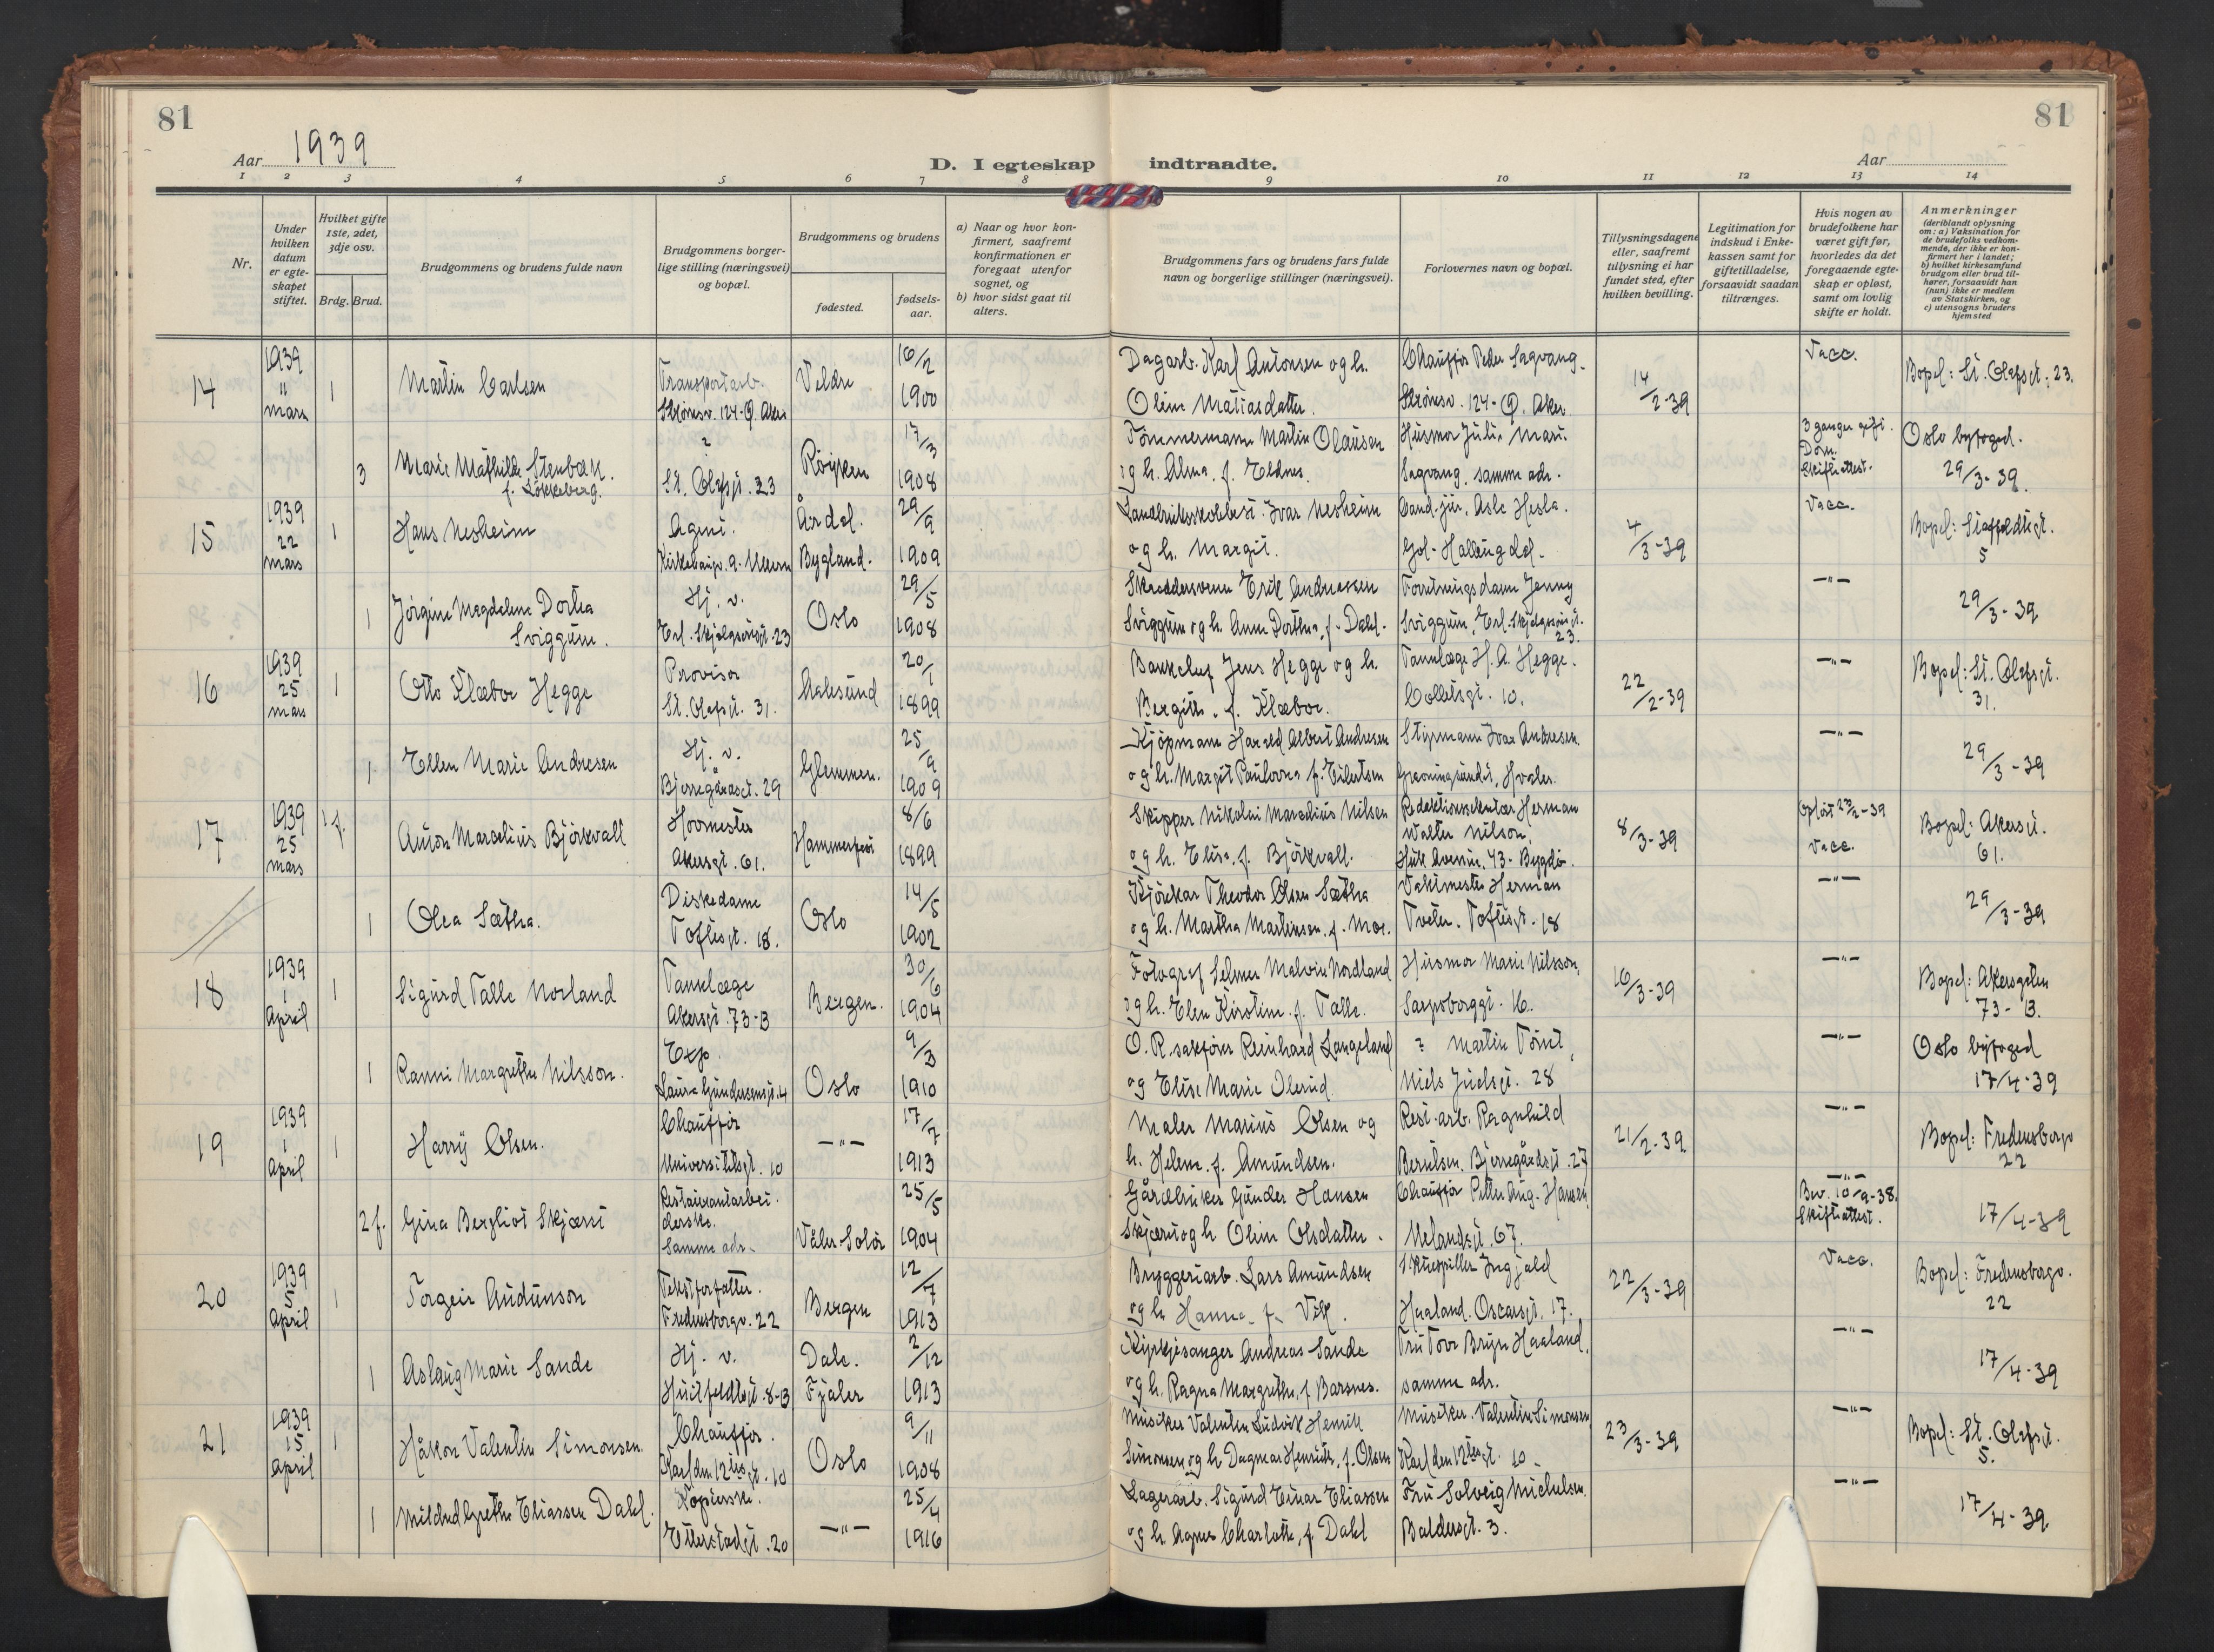 81
81
Aar 1939
D. I egteskap indtraadte.
Aar
1 2 3 4 5 6 7 8 9 10 11 12 13 14
Nr.
Under hvilken datum er egteskapet stiftet.
Hvilket gifte 1ste, 2det, 3dje osv.
Brdg. Brud.
Brudgommens og brudens fulde navn
Brudgommens borgerlige stilling (næringsvei) og bopæl.
Brudgommens og brudens
fødested.
fødselsaar.
a) Naar og hvor konfirmert, saafremt konfirmationen er foregaat utenfor sognet, og
b) hvor sidst gaat til alters.
Brudgommens fars og brudens fars fulde navn og borgerlige stillinger (næringsvei).
Forlovernes navn og bopæl.
Tillysningsdagene eller, saafremt tillysning ei har fundet sted, efter hvilken bevilling.
Legitimation for indskud i Enkekassen samt for giftetilladelse, forsaavidt saadan tiltrænges.
Hvis nogen av brudefolkene har været gift før, hvorledes da det foregaaende egteskap er opløst, samt om lovlig skifte er holdt.
Anmerkninger
(deriblandt oplysning om: a) Vaksination for de brudefolks vedkommende, der ikke er konfirmert her i landet; b) hvilket kirkesamfund brudgom eller brud tilhører, forsaavidt han (hun) ikke er medlem av Statskirken, og c) utensogns bruders hjemsted
14 1939 11 mars 1 Martin Carlsen Transportarb. Veldre 16/2 1900
Dagarb. Karl Antonsen og h. Oline Matiasdatter. Chauffør Peder Sagvang. 124- Ø. Aker 14/2-39 Vacc. Bopel: St. Olafsgt. 23.
3 Marie Mathilde Stenbæk. f. Løkkeberg. ? St. Olafsgt. 23 Røyken 17/3 1908
Tømmermann Martin Olausen og h. Alma. f. Husmor Julie Marie Sagvang, samme adr. 3 ganger gift. Dom. Skifteattest. Oslo byfoged. 29/3-39.
15 1939 22 mars 1 Hans Nesheim Agent. Årdal. Bygland. 29/9 1909
Ivar Nesheim og h. Margit. Cand. jur. Asle Hesla. Gol- Hallingdal. 4/3-39 Vacc. Bopel: Staffeldtsgt. 5
1 Jörgine Magdalene Dortea Sviggum. Hj. v. Erl. Skjalgssønsgt. 23 Oslo 29/5 1908
Skreddersvenn Erik Andreassen Sviggum og h. Anne Dorthea, f. Dahl. Forretningsdame Jenny Sviggum, Erl. Skjalgssønsgt. 23. -"- 29/3-39
16 1939 25 mars 1 Otto Klæbor Hegge Provisor St. Olafsgt. 31. Aalesund 20/1 1899
Banksjef Jens Hegge og h. Bergitte. f. Klæbor. Tannlæge H. A. Hegge. Collettsgt. 10. 22/2-39 -"- Bopel: St. Olafsgt. 31.
1 Ellen Marie Andresen Hj. v. Bjerregårdsgt. 29 Glemmen. 25/9 1909
Kjöpmann Harald Albert Andresen og h. Margit Paulovna f. Eilertsen Styrmann Ivar Andresen. Hvaler. -"- 29/3-39
17 1939 25 mars 1 f. Anton Marcelius Björkvall Hovmester Akersgt. 61. Hammerfest 8/6 1899
Skipper Nikolai Marcelius Nilsen og h. Elise, f. Björkvall. Redaktionssekretær Herman Walter Nilson, Huk Avenue, 43- Bygdø. 8/3-39 Vacc. Bopel: Akersgt. 61.
1 Olea Sætha. Diskedame Toftesgt. 18. Oslo 14/5 1902
Kjörekar Theodor Olsen Sætha og h. Martha Martinsen, f. Moe. Vaktmester Herman Tveter. Toftesgt. 18 -"- 29/3-39
18 1939 1 April 1 Sigurd Talle Norland Tannlæge Akersgt. 73-B Bergen. 30/6 1904
Fotograf Selmer Malvin Nordland og h. Elen Kirstine. f. Talle. Husmor Marie Nilsson, Sarpsborggt. 16. 16/3-39 -"- Bopel: Akersgaten 73-B.
1 Ranni Margrethe Nilsson. Exp. Laura Gundersensgt. 4 Oslo 9/3 1910
O. R. sakfører Reinhard Langeland og Elise Marie Olerud. ? Martin Niels Juelsgt. 28 -"- Oslo byfoged 17/4-39
19 1939 1 April 1 Harry Olsen. Chauffør Universitetsgt. 10 -"- 17/7 1913
Maler Marius Olsen og h. Helene. f. Amundsen. Rest. arb. Ragnhild Berntsen. Bjerregårdsgt. 27 21/2-39 -"- Bopel: Fredensborgv 22
2 f. Gina Bergliot Skjæret Restaurantarbeiderske. samme adr. Våler-Solør 25/5 1904
Gårdbruker Gunder Hansen Skjæret og h. Oline Olsdatter. Chauffør Petter Aug. Hansen, Nelandsgt. 67. -"- Bev. 10/9-38. Skifteattest. 17/4-39
20 1939 5 April 1 Torgeir Audunson Tekstforfatter. Fredensborgv. 22 Bergen 12/7 1913
Bryggeriarb. Lars Amundsen og h Hanna. f. Vik. Skuespiller Ingjald Haaland. Oscarsgt. 17. 22/3-39 Vacc. Bopel: Fredensborgv. 22
1 Aslaug Marie Sande Hj. v. Huitfeldtsgt. 8-B Dale. Fjaler 2/12 1913
Kyrkjesanger Andreas Sande og h. Ragna Margrethe, f. Barsnes. Fru Tove Bryn Haaland, samme adr. -"- 17/4-39
21 1939 15 April 1 Håkon Valentin Simonsen. Chauffør. Karl den 12tes gt. 10 Oslo 9/11 1908
Musiker Valentin Ludvik Henrik Simonsen og h Dagmar Henriette, f. Olsen Musiker. Valentin Simonsen, Karl den 12tes gt. 10 23/3-39 -"- Bopel: St. Olafsgt. 5.
1 Mildred Grethe Eliassen Dahl. Kopierske. Etterstadgt. 20 -"- 25/4 1916
Lagerarb. Sigurd Einar Eliassen og h Agnes Charlotte, f. Dahl Fru Solveig Michelsen. Baldersgt. 3. -"- 17/4-39.